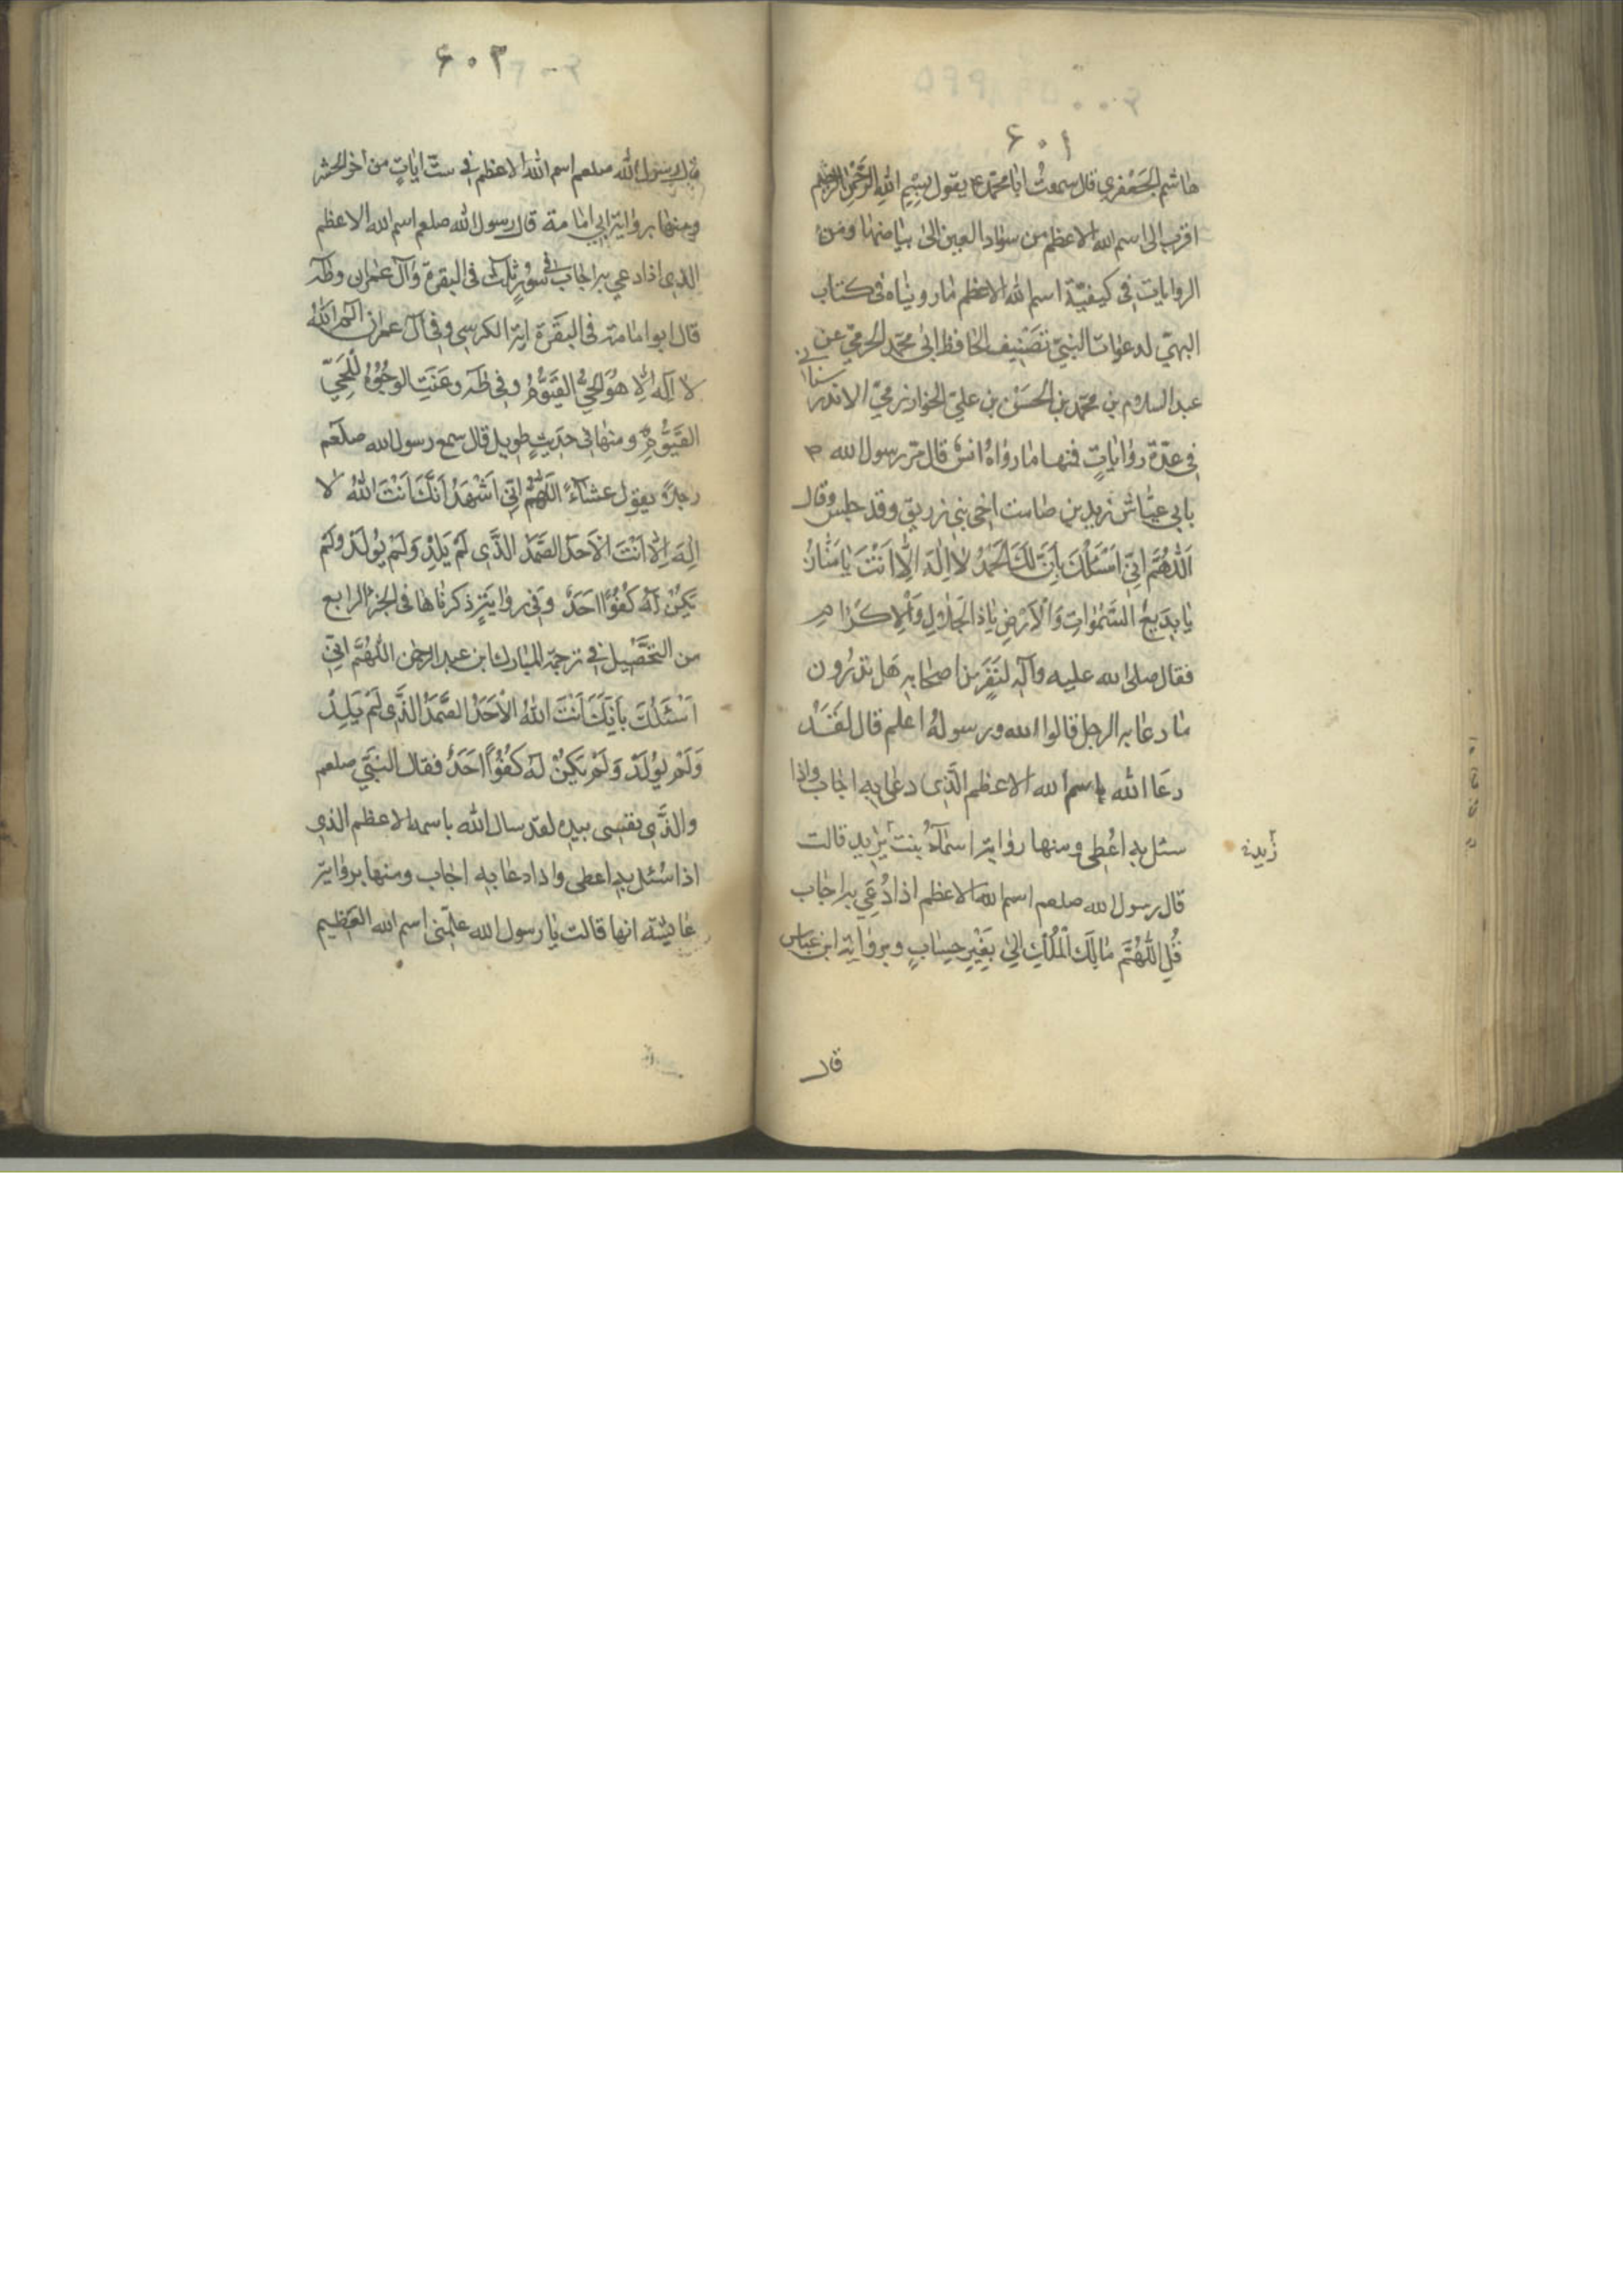 ۶۰۱
هاشم الجعفري قال سمعت ابا محمد ع يقول بِسْمِ اللهِ الرَّحْمٰنِ الرَّحِيم
اقرب الى اسم الله الاعظم من سواد العين الى بياضها ومن
الروايات في كيفية اسم الله الاعظم ما رويناه فى كتاب
البهي لدعوات النبي تصنيف الحافظ ابى محمد الحرمي عن
عبد السلام بن محمد بن الحسن بن علي الخوارزمي الاندرسناني
في عدة روايات فمنها ما رواه انس قال مر رسول الله ص
بابي عياش زيد بن صامت اخى بني زريق وقد جلس وقال
اَللّهُمَّ اِنّي اَسْئَلُكَ بِاَنَّ لَكَ الْحَمْدُ لا اِلهَ اِلّا اَنْتَ يا مَنّانُ
يا بَديعَ السَّمواتِ وَالْاَرْضِ يا ذَا الْجَلالِ وَالْاِكْرامِ
فقال صلى الله عليه وآله لنفر من اصحابه هل تدرون
ما دعا به الرجل قالوا الله ورسوله اعلم قال لقد
دعا الله باسم الله الاعظم الذى دعى به اجاب واذا
سئل به اعطى ومنها رواية اسمآء بنت يزيد قالت
قال رسول الله صلعم اسم الله الاعظم اذا دُعي به اجاب
قُلِ اللّهُمَّ مالِكَ الْمُلْكِ الى بِغَيْرِ حِسابٍ وبرواية ابن عباس
قال
۶۰۲
قال رسول الله صلعم اسم الله الاعظم في ست ايات من اخر الحشر
ومنها برواية ابي امامة قال رسول الله صلعم اسم الله الاعظم
الذى اذا دعي به اجاب في سور ثلث فى البقرة وآل عمران وطه
قال ابو امامة فى البقرة اية الكرسي وفي آل عمران الم الله
لا اله الا هو الحي القيوم وفي طه وعنت الوجوه للحي
القيوم ومنها في حديث طويل قال سمع رسول الله صلعم
رجلا يقول عشاء اَللّهُمَّ اِنّي اَشْهَدُ اَنَّكَ اَنْتَ اللهُ لا
اِلهَ اِلّا اَنْتَ الْاَحَدُ الصَّمَدُ الَّذي لَمْ يَلِدْ وَلَمْ يُولَدْ وَلَمْ
يَكُنْ لَهُ كُفُوًا اَحَدٌ وفي رواية ذكرناها فى الجزء الرابع
من التحصيل في ترجمة المبارك بن عبد الرحمن اللّهُمَّ اِنّي
اَسْئَلُكَ بِاَنَّكَ اَنْتَ اللهُ الْاَحَدُ الصَّمَدُ الَّذي لَمْ يَلِدْ
وَلَمْ يُولَدْ وَلَمْ يَكُنْ لَهُ كُفُوًا اَحَدٌ فقال النبي صلعم
والذي نفسى بيده لقد سال الله باسمه الاعظم الذي
اذا سُئل به اعطى واذا دعا به اجاب ومنها برواية
عايشة انها قالت يا رسول الله علّمني اسم الله العظيم